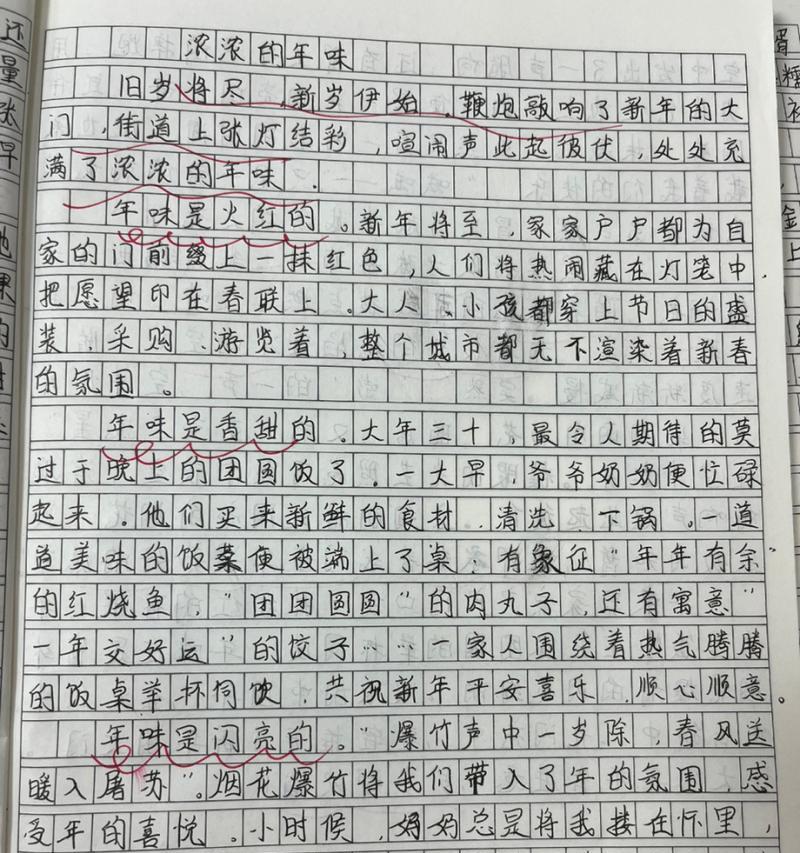 浓浓的年味
旧岁将尽，新岁伊始，鞭炮敲响了新年的大
门，街道上张灯结彩，喧闹声此起彼伏，处处充
满了浓浓的年味．
年味是火红的。新年将至，家家户户都为自
家的门前缀上一抹红色，人们将热闹藏在灯笼中．
把愿望印在春联上。大人、小孩都穿上节日的盛
装，采购、游览着，整个城市都无不渲染着新春
的氛围。
年味是香甜的。大年三十，最令人期待的莫
过于晚上的团圆饭了．一大早，爷爷奶奶便忙碌
起来．他们买来新鲜的食材，清洗，下锅。一道
道美味的饭菜便被端上了桌：有象征“年年有余”
的红烧鱼，“团团圆圆”的肉丸子，还有寓意“
一年交好运”的饺子……一家人围绕着热气腾腾
的饭桌举杯同饮，共祝新年平安喜乐，顺心顺意。
年味是闪亮的。“爆竹声中一岁除，春风送
暖入屠苏”。烟花爆竹将我们带入了年的氛围，感
受年的喜悦。小时候，妈妈总是将我搂在怀里，
还
量
张
早